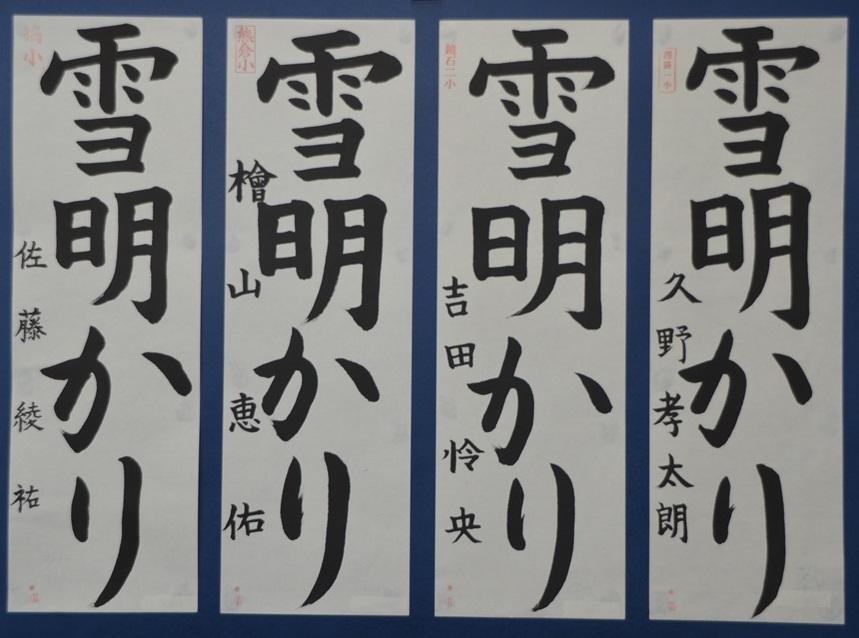 雪明かり
久野孝太朗
鏡石二小
雪明かり
吉田怜央
熊倉小
雪明かり
檜山恵佑
雪明かり
佐藤綾祐